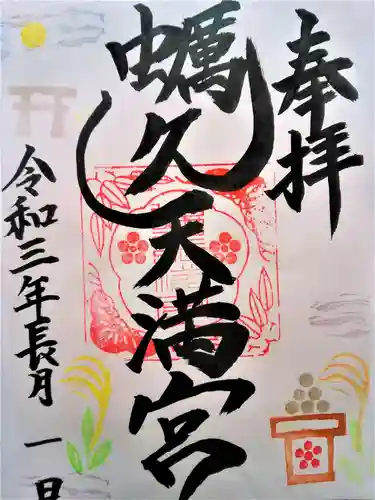 奉拝
蠣久天満宮
令和三年長月一日